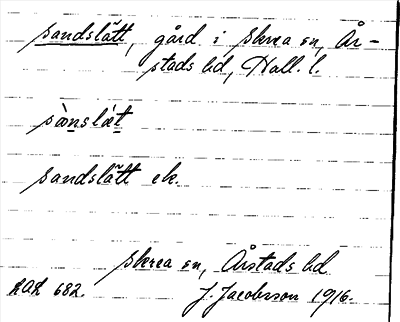 sandslätt, gård i Skrea sn, År-
stads hd, Hall. l.
sànsla̍t
sandslätt ek.
Skrea sn, Årstads hd
RAÄ 682. J. Jacobsson 1916.